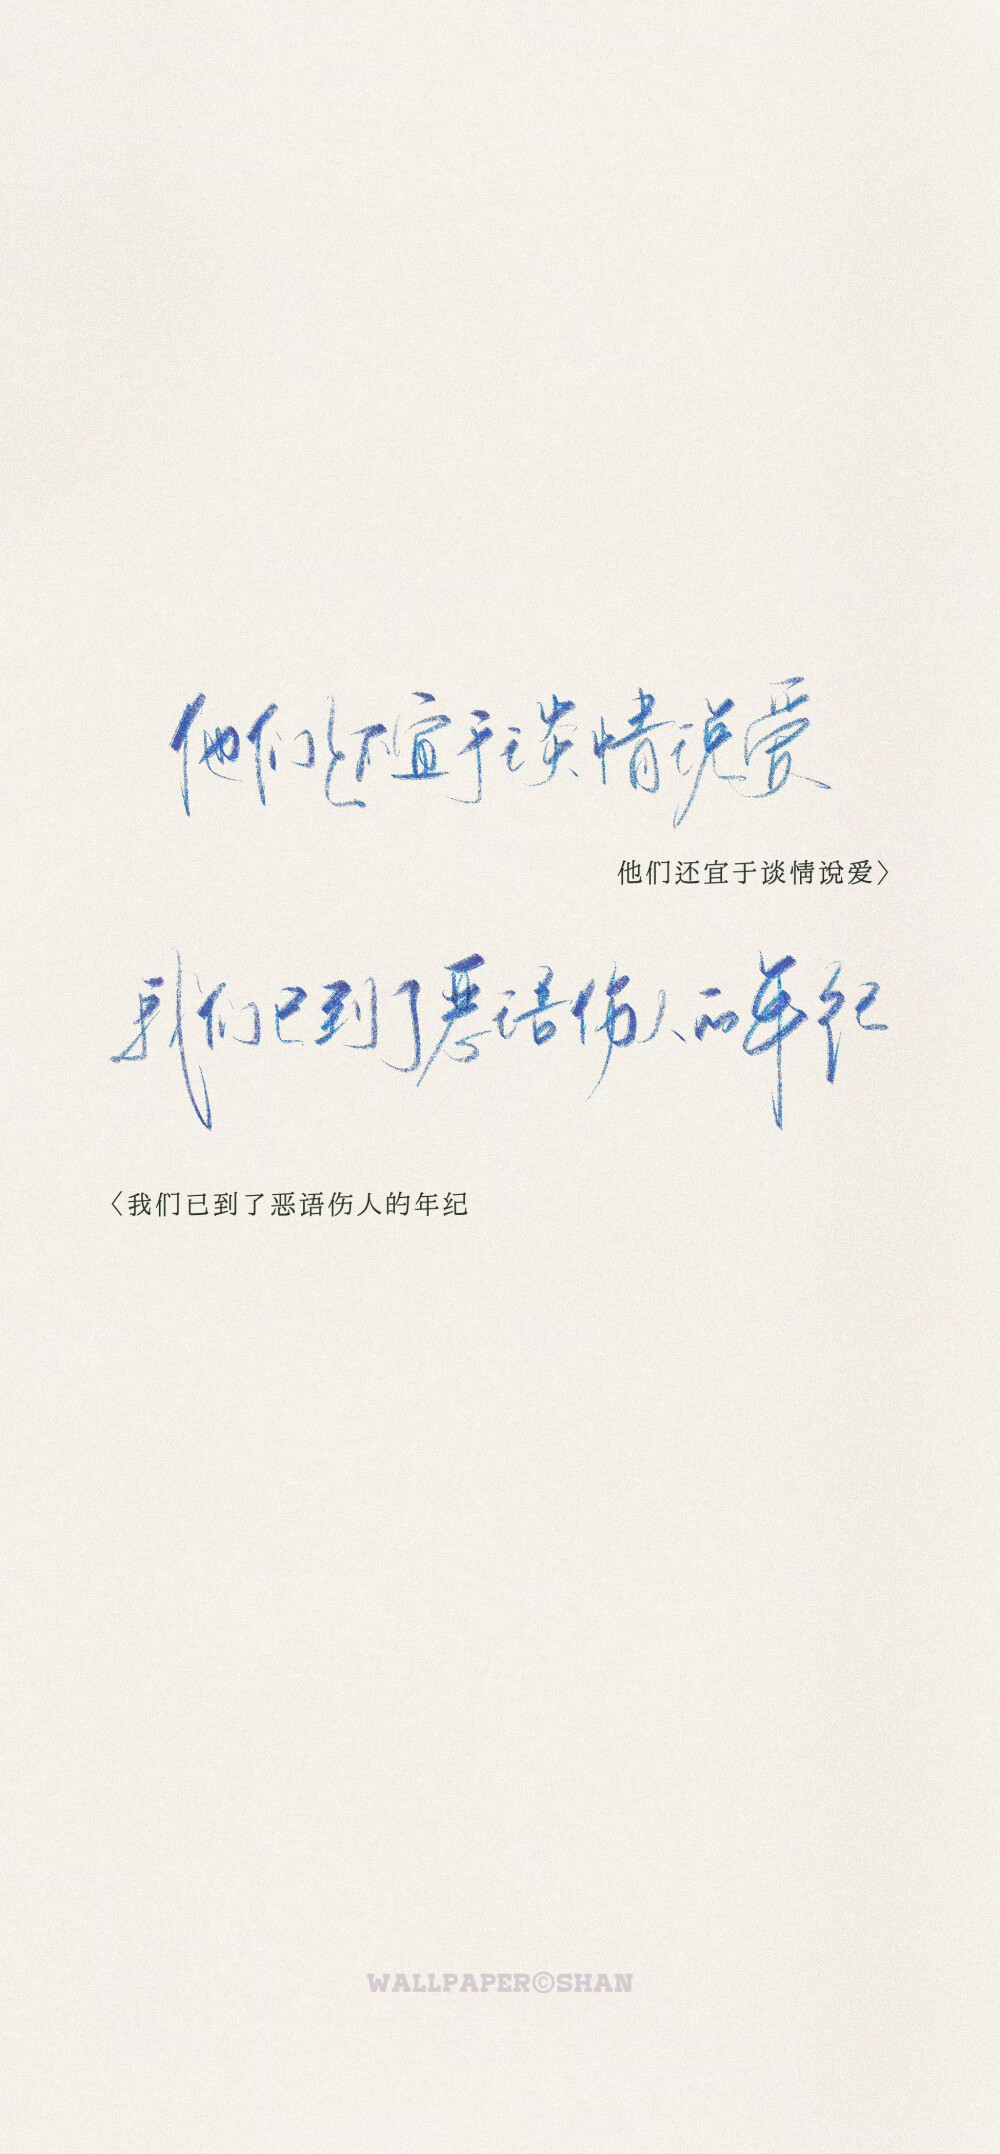 他们还宜于谈情说爱
他们还宜于谈情说爱〉
我们已到了恶语伤人的年纪
〈我们已到了恶语伤人的年纪
WALLPAPER©SHAN